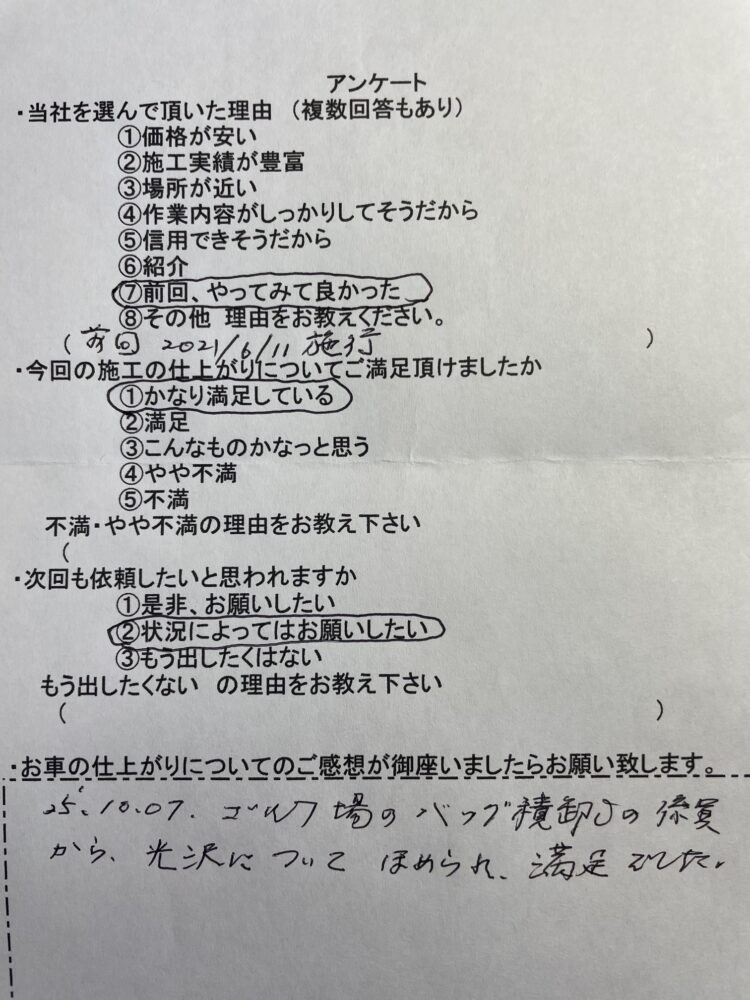 アンケート
・当社を選んで頂いた理由　（複数回答もあり）
①価格が安い
②施工実績が豊富
③場所が近い
④作業内容がしっかりしてそうだから
⑤信用できそうだから
⑥紹介
⑦前回、やってみて良かった
⑧その他　理由をお教えください。
（前回 2021/6/11 施行　）
・今回の施工の仕上がりについてご満足頂けましたか
①かなり満足している
②満足
③こんなものかなっと思う
④やや不満
⑤不満
不満・やや不満の理由をお教え下さい
（
・次回も依頼したいと思われますか
①是非、お願いしたい
②状況によってはお願いしたい
③もう出したくはない
もう出したくない　の理由をお教え下さい
（　）
・お車の仕上がりについてのご感想が御座いましたらお願い致します。
25'.10.07. ゴルフ場のバッグ積卸しの係員
から、光沢について ほめられ、満足でした。